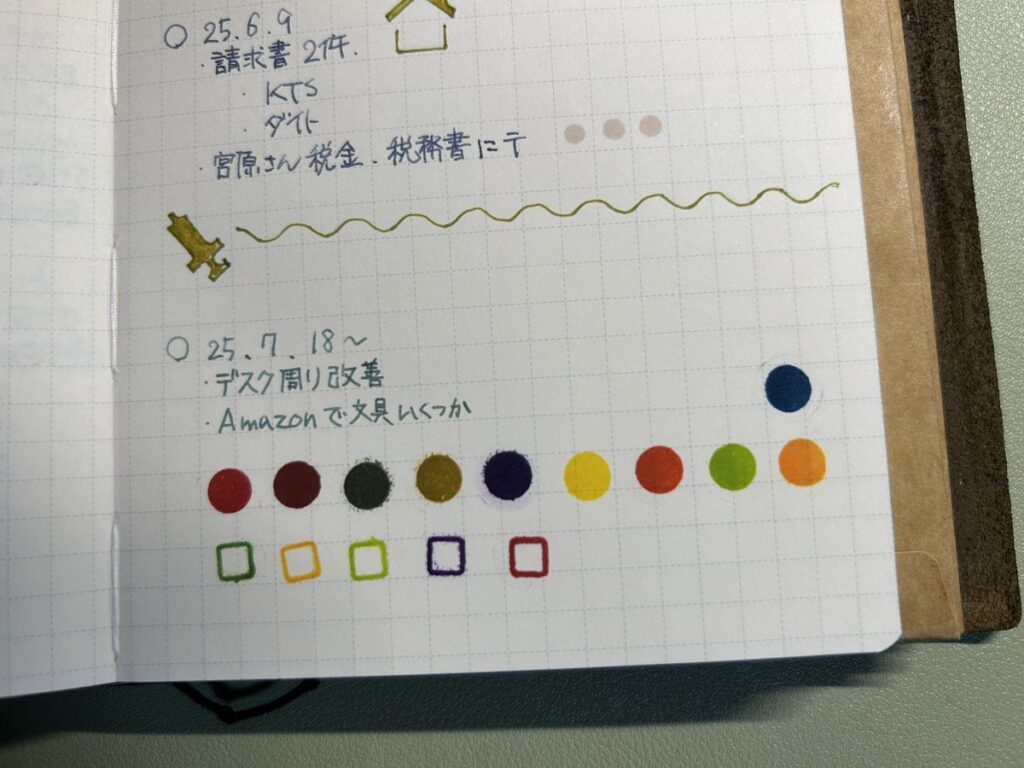 ○ 25.6.9
・請求書 2件.
・KTS
・ダイト
・宮原さん税金.税務書にテ
○ 25.7.18〜
・デスク周り改善
・Amazonで文具いくつか